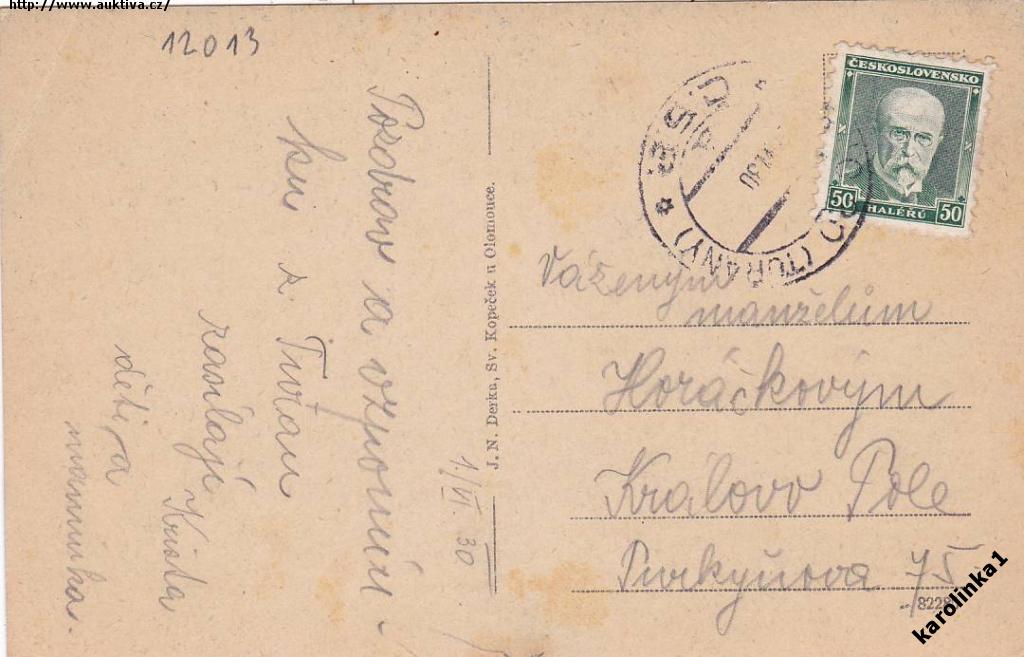 http://www.auktiva.cz
12013
Pozdrav a vzpomín-
ku z Tuřan
zasílají
děti, a
maminka.
1./VI. 30
J. N. Derka, Sv. Kopeček u Olomouce.
ČESKOSLOVENSKO
50 HALÉŘŮ 50
(TUŘANY)
VI.30
Váženým
manželům
Horáčkovým
Královo Pole
Purkyňova 75
8228
karolinka1